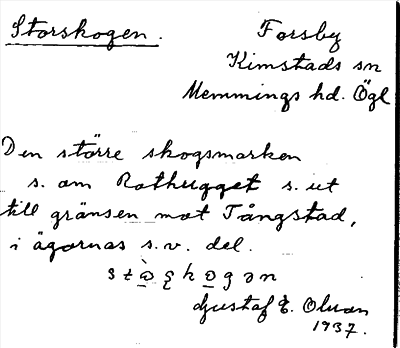 Storskogen.
Forsby
Kimstads sn
Memmings hd. Ögl
Den större skogsmarken
s. om Rothugget s. ut
till gränsen mot Tångstad,
i ägornas s.v. del.
Gustaf E.
1937.